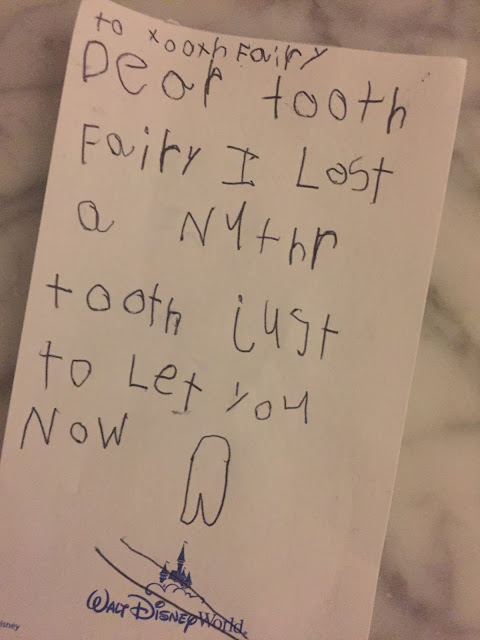 to tooth Fairy
Dear tooth
Fairy I Lost
a Nythr
tooth just
to Let you
Now
WALT DISNEY World
isney